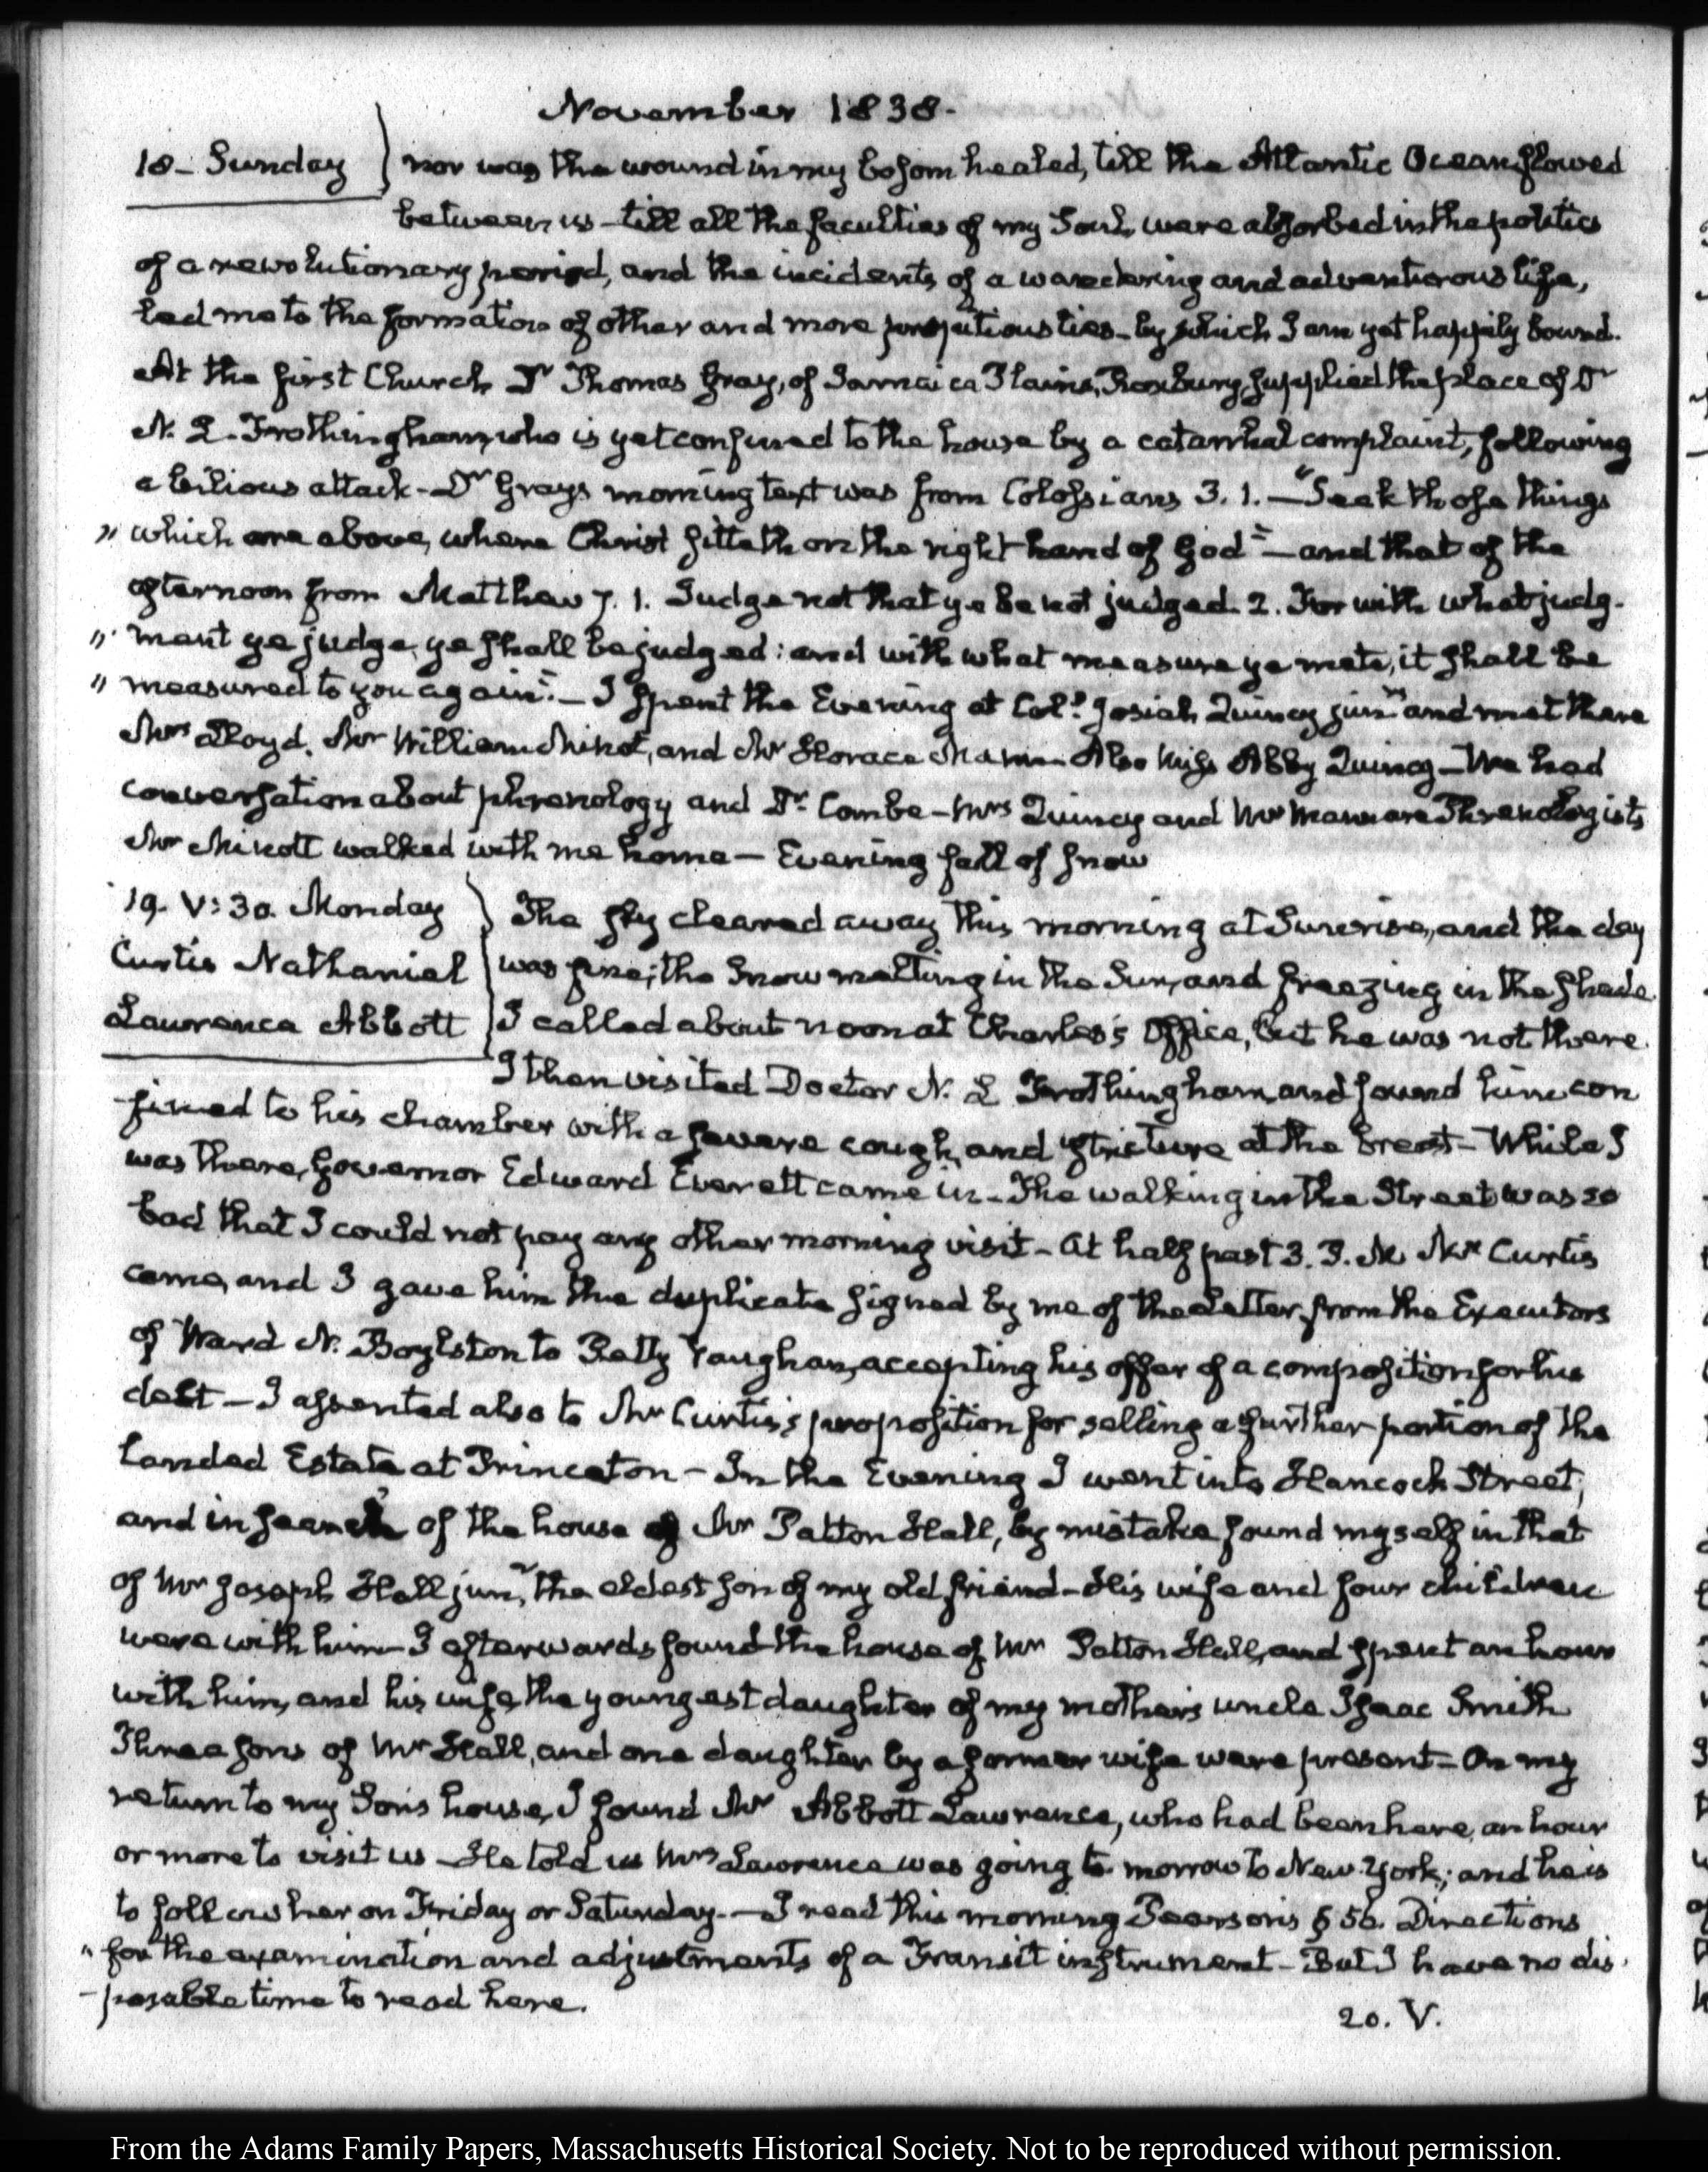 November 1838.
18. Sunday
nor was the wound in my bosom healed, till the Atlantic Ocean flowed
between us - till all the faculties of my Soul, were absorbed in the politics
of a revolutionary period, and the incidents of a wandering and adventurous life,
led me to the formation of other and more propitious ties - by which I am yet happily bound.
At the first Church Dr Thomas Gray, of Jamaica Plains, Roxbury, supplied the place of Dr
N. L. Frothingham, who is yet confined to the house by a catarrhal complaint, following
a bilious attack - Dr Grays morning text was from Colossians 3. 1. — "Seek those things
" which are above, where Christ sitteth on the right hand of God" — and that of the
afternoon from Matthew 7. 1. Judge not that ye be not judged. 2. For with what judg-
" ment ye judge, ye shall be judged: and with what measure ye mete, it shall be
" measured to you again". — I spent the Evening at Col.l Josiah Quincy junr and met there
Mrs Lloyd, Mr William Minot, and Mr Horace Mann. Also Miss Abby Quincy — We had
conversation about phrenology and Dr. Combe - Mrs Quincy and Mr Mann are Phrenologists
Mr Minott walked with me home — Evening fall of snow
19. V: 30. Monday
Curtis Nathaniel
Lawrence Abbott
The sky cleared away this morning at Sunrise, and the day
was fine; the Snow melting in the Sun, and freezing in the shade.
I called about noon at Charles's Office, but he was not there.
I then visited Doctor N. L Frothingham, and found him con
-fined to his chamber with a severe cough, and stricture at the breast - While I
was there, Governor Edward Everett came in - The walking in the Street was so
bad that I could not pay any other morning visit - At half past 3. P. M. Mr Curtis
came, and I gave him the duplicate signed by me of the Letter from the Executors
of Ward N. Boylston to Petty Vaughan, accepting his offer of a composition for his
debt — I assented also to Mr Curtis's proposition for selling a further portion of the
landed Estate at Princeton - In the Evening I went into Hancock Street,
and in search of the house of Mr Patton Hall, by mistake found myself in that
of Mr Joseph Hall junr, the eldest son of my old friend - His wife and four children
were with him - I afterwards found the house of Mr Patton Hall, and spent an hour
with him, and his wife, the youngest daughter of my mother's uncle Isaac Smith
Three sons of Mr Hall, and one daughter by a former wife were present - On my
return to my Son's house, I found Mr Abbott Lawrence, who had been here, an hour
or more to visit us - He told us Mrs Lawrence was going to morrow to New-York; and he is
to follow her on Friday or Saturday. — I read this morning Pearson's § 56. Directions
" for the examination and adjustments of a Transit instrument - But I have no dis-
-posable time to read here.
20. V.
From the Adams Family Papers, Massachusetts Historical Society. Not to be reproduced without permission.